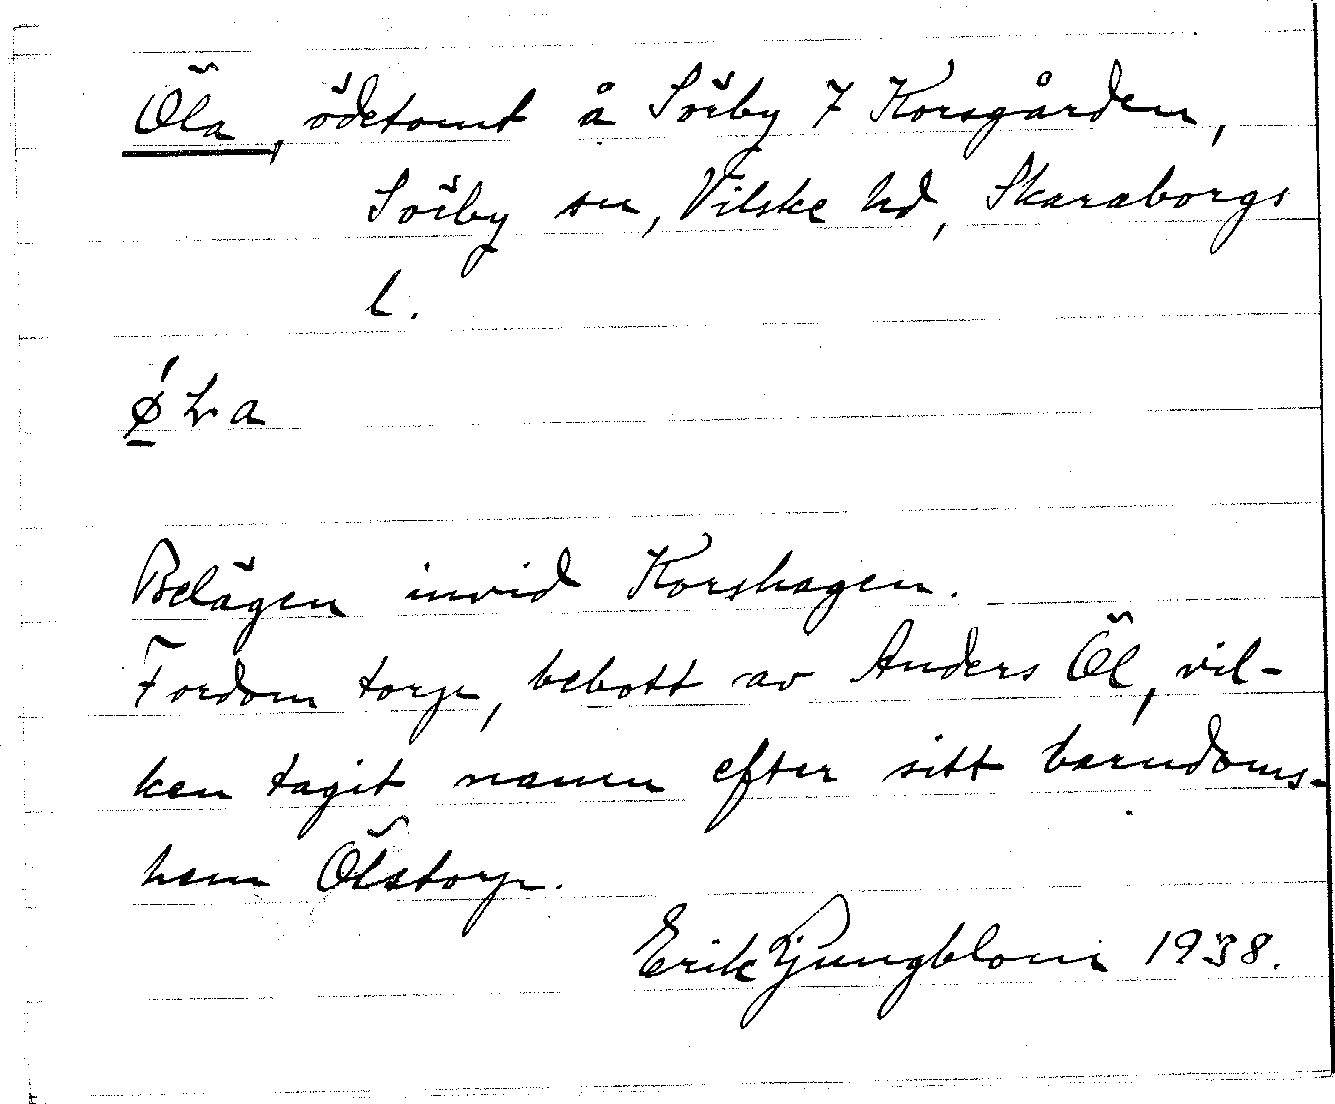 Öla, ödetomt å Sörby 7 Korsgården,
Sörby sn, Vilske hd, Skaraborgs
l.
Belägen invid Korshagen.
Fordom torp, bebott av Anders Öl, vil-
ken tagit namn efter sitt barndoms-
hem Ölstorp.
Erik Ljungblom 1938.